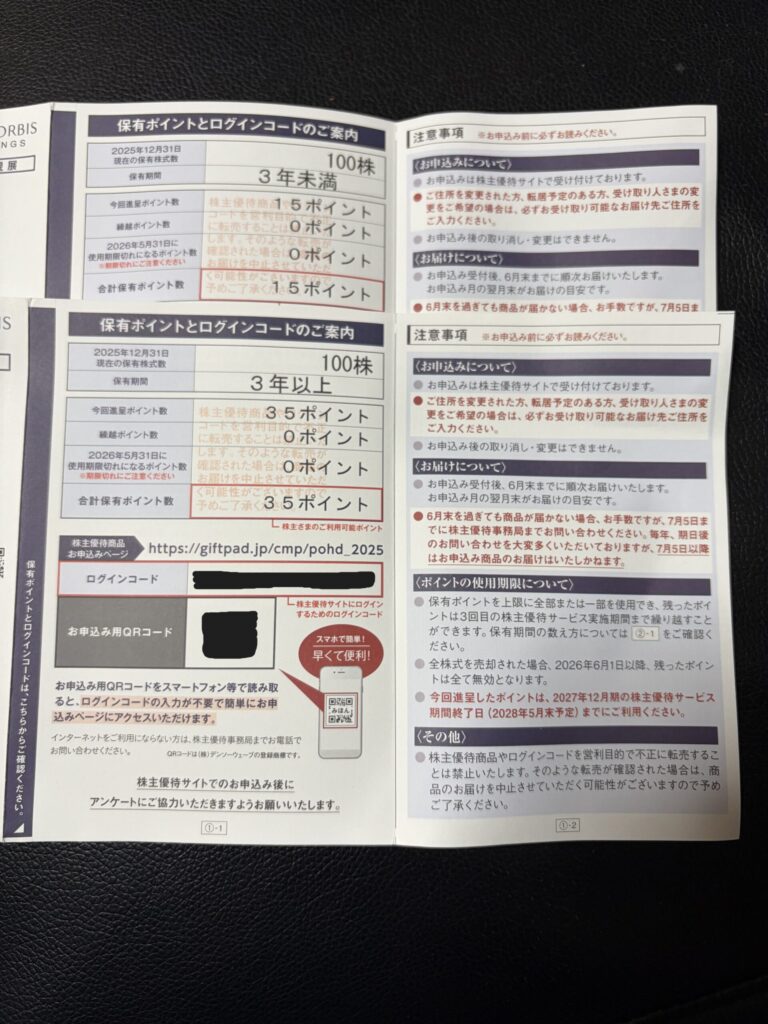 ORBIS
NGS
展
保有ポイントとログインコードのご案内
2025年12月31日
現在の保有株式数
100株
保有期間
3年未満
今回進呈ポイント数
15ポイント
繰越ポイント数
0ポイント
2026年5月31日に
使用期限切れになるポイント数
※期限切れにご注意ください
0ポイント
合計保有ポイント数
15ポイント
株主優待商品や
コードを営利目的で
に転売すること
します。そのような転売が
確認された場合は
お届けを中止させていただ
く可能性がございますので
予めご了承ください
注意事項 ※お申込み前に必ずお読みください。
〈お申込みについて〉
お申込みは株主優待サイトで受け付けております。
ご住所を変更された方、転居予定のある方、受け取り人さまの変
更をご希望の場合は、必ずお受け取り可能なお届け先ご住所を
ご入力ください。
お申込み後の取り消し・変更はできません。
〈お届けについて〉
お申込み受付後、6月末までに順次お届けいたします。
お申込み月の翌月末がお届けの目安です。
6月末を過ぎても商品が届かない場合、お手数ですが、7月5日ま
IS
保有ポイントとログインコードのご案内
2025年12月31日
現在の保有株式数
100株
保有期間
3年以上
今回進呈ポイント数
35ポイント
繰越ポイント数
0ポイント
2026年5月31日に
使用期限切れになるポイント数
※期限切れにご注意ください
0ポイント
合計保有ポイント数
35ポイント
株主優待商品や
コードを営利目的で
に転売することは
します。そのような転売が
確認された場合は
お届けを中止させていただ
く可能性がございますので
予めご了承ください
株主さまのご利用可能ポイント
株主優待商品
お申込みページ
https://giftpad.jp/cmp/pohd_2025
ログインコード
株主優待サイトにログイン
するためのログインコード
お申込み用QRコード
スマホで簡単!
早くて便利!
みほん
お申込み用QRコードをスマートフォン等で読み取
ると、ログインコードの入力が不要で簡単にお申
込みページにアクセスいただけます。
インターネットをご利用にならない方は、株主優待事務局までお電話で
お問い合わせください。
QRコードは(株)デンソーウェーブの登録商標です。
株主優待サイトでのお申込み後に
アンケートにご協力いただきますようお願いいたします。
①-1
保有ポイントとログインコードは、こちらからご確認ください。
注意事項 ※お申込み前に必ずお読みください。
〈お申込みについて〉
お申込みは株主優待サイトで受け付けております。
ご住所を変更された方、転居予定のある方、受け取り人さまの変
更をご希望の場合は、必ずお受け取り可能なお届け先ご住所を
ご入力ください。
お申込み後の取り消し・変更はできません。
〈お届けについて〉
お申込み受付後、6月末までに順次お届けいたします。
お申込み月の翌月末がお届けの目安です。
6月末を過ぎても商品が届かない場合、お手数ですが、7月5日ま
でに株主優待事務局までお問い合わせください。毎年、期日後
のお問い合わせを大変多くいただいておりますが、7月5日以降
はお申込み商品のお届けはいたしかねます。
〈ポイントの使用期限について〉
保有ポイントを上限に全部または一部を使用でき、残ったポイ
ントは3回目の株主優待サービス実施期間まで繰り越すこと
ができます。保有期間の数え方については ②-1 をご確認くだ
さい。
全株式を売却された場合、2026年6月1日以降、残ったポイント
は全て無効となります。
今回進呈したポイントは、2027年12月期の株主優待サービス
期間終了日(2028年5月末予定)までにご利用ください。
〈その他〉
株主優待商品やログインコードを営利目的で不正に転売するこ
とは禁止いたします。そのような転売が確認された場合は、商
品のお届けを中止させていただく可能性がございますので予め
ご了承ください。
①-2